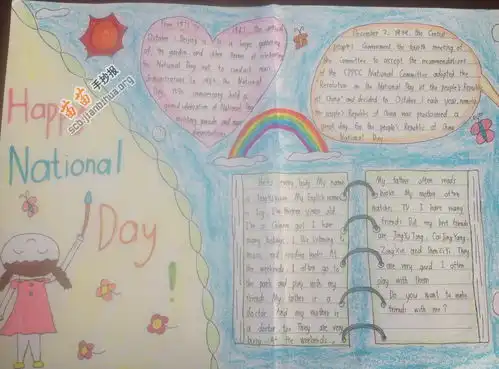 Happy
National
Day
!
苗苗手抄报
scb.jianbihua.org
From 1971 1983, the annual
October 1 Beijing is in a large gathering
of the garden and other forms of celebrating
the National Day, not to conduct mass
demonstrations. In 1984, the National
Day 35th anniversary held a
grand celebration of National Day
military parade and mass
demonstrations.
December 2, 1949, the Central
people's Government the fourth meeting of
the committee to accept the recommendations
of the CPPCC National Committee adopted the
Resolution on the National Day of the people's Republic
of China" and decided to October 1 each year, namely
the people's Republic of China was proclaimed a
great day, for the people's Republic of China
National Day.
Hello every body. My name
is My English name
is Joy. I'm years old
I'm a Chinese girl. I have
many hobbies. I like listening to
music and reading books. At
the weekends I often go to
the park and play with my
friends. My father is a
doctor. And my mother is
a doctor too. They are very
busy. At the weekends,
My father often reads
books. My mother often
watches TV. I have many
friends. But my best friends
are Tong, Cai Jing Yang,
They
are very good. I often
play with them.
Do you want to make
friends with me?